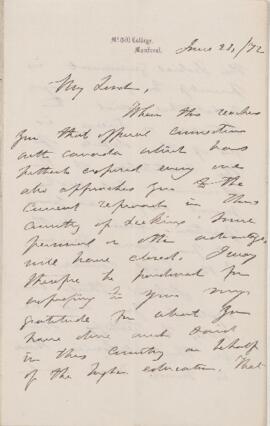 McGill College,
Montreal. June 21,/72
My Lord,
When this reaches
you that official connection
with Canada which has
hitherto exposed every one
who approaches you to the
current reproach in this
country of seeking some
personal or other advantage
will have closed. I may
therefore be pardoned for
expressing to you my
gratitude for what you
have done and said
in this country on behalf
of the higher education. That